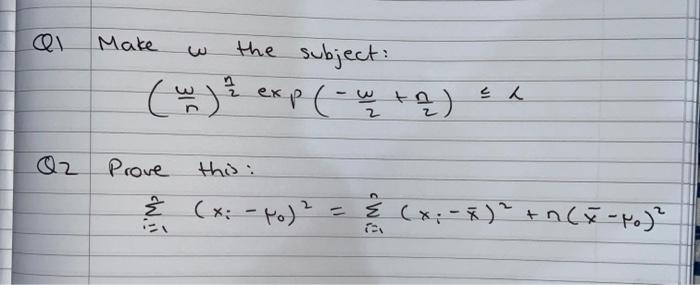 Q1 Make w the subject:
(w/n)^(n/2) exp(-w/2 + n/2) ≤ λ
Q2 Prove this:
∑_{i=1}^{n} (x_i - μ₀)² = ∑_{i=1}^{n} (x_i - x̄)² + n(x̄ - μ₀)²